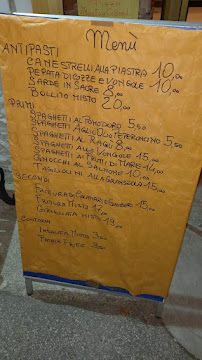 Menù
ANTIPASTI
CANESTRELLI ALLA PIASTRA 10,00
PEPATA DI COZZE E VONGOLE 10,00
SARDE IN SAORE 8,00
BOLLITO MISTO 20,00
PRIMI
SPAGHETTI AL POMODORO 5,50
SPAGHETTI AGLIO OLIO E PEPERONCINO 5,50
SPAGHETTI AL RAGÙ 8,00
SPAGHETTI ALLE VONGOLE 15,00
SPAGHETTI AI FRUTTI DI MARE 14,00
GNOCCHI AL SALMONE 10,00
TAGLIOLINI ALLA GRANSEOLA 15,00
SECONDI
FRITTURA DI CALAMARI E GAMBERI 15,00
FRITTURA MISTA 17,00
GRIGLIATA MISTA 19,00
CONTORNI
INSALATA MISTA 3,00
PATATE FRITTE 3,00